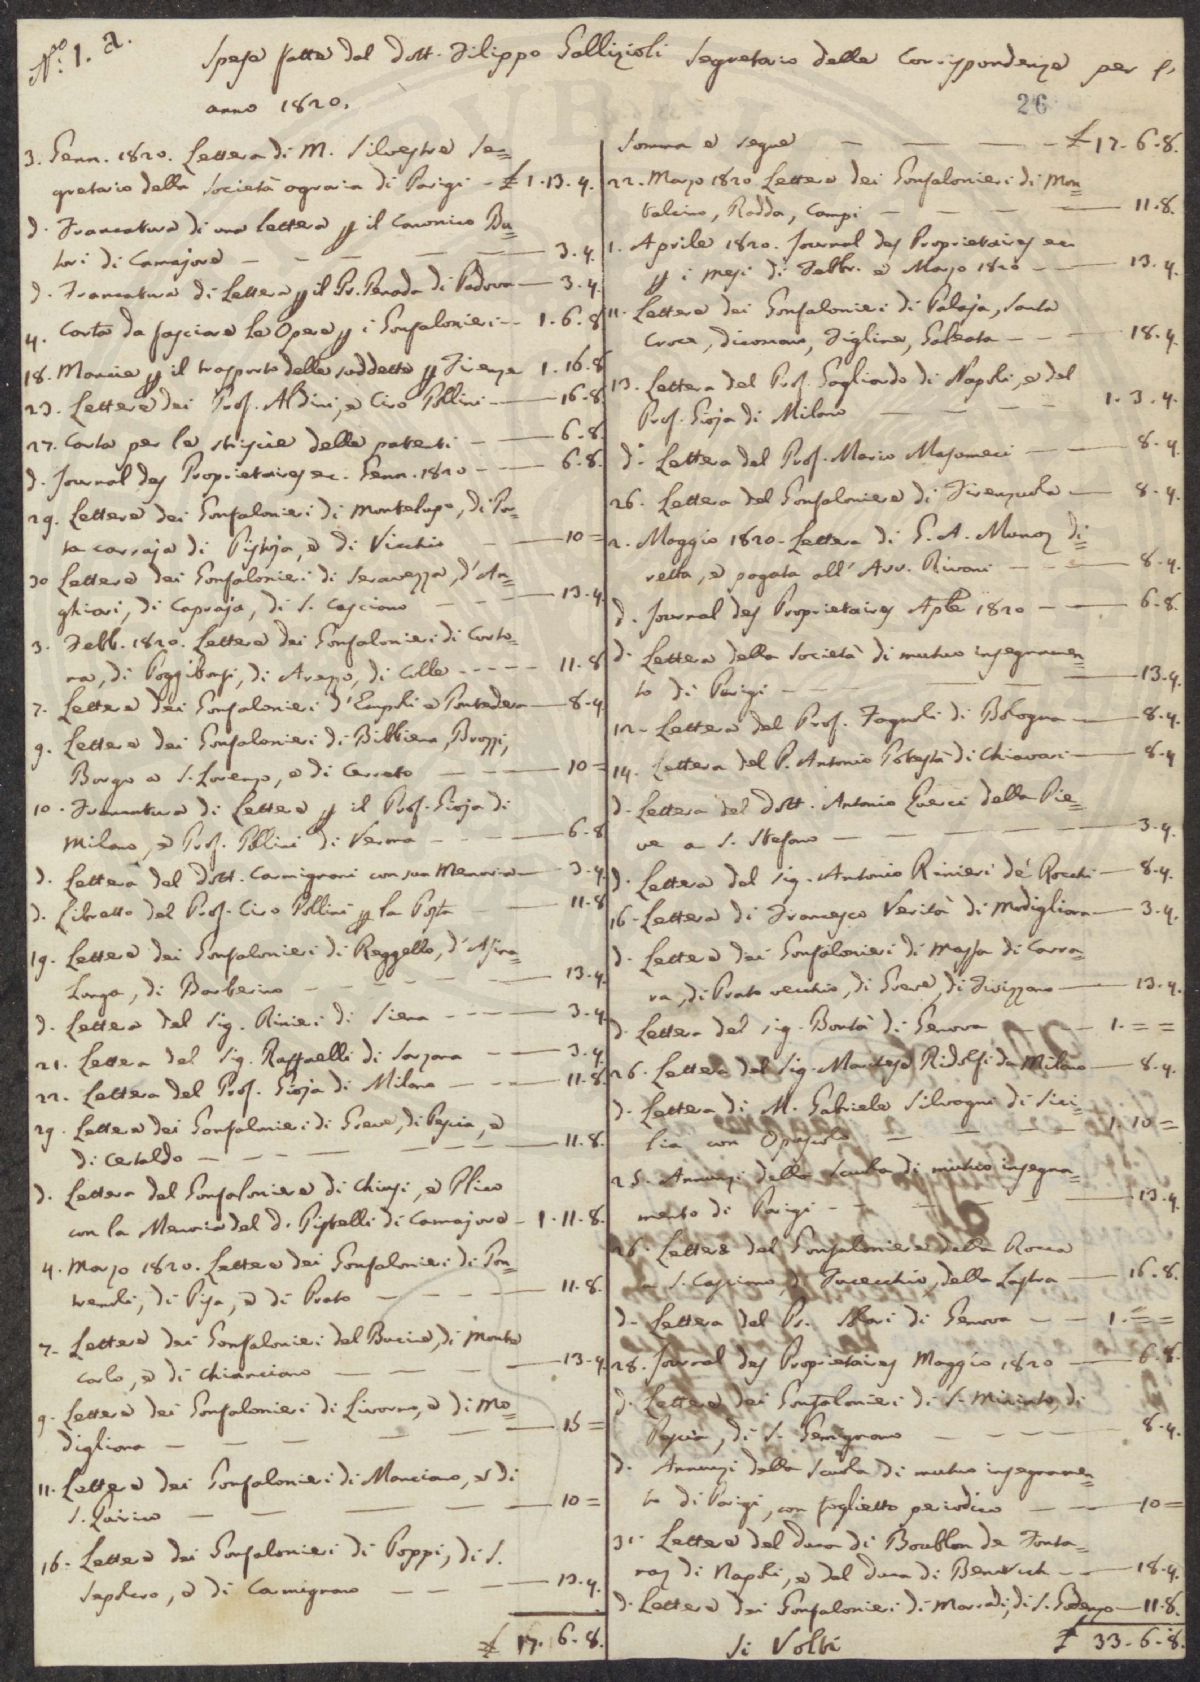 N.º 1. a.
Spese fatte dal Dott. Filippo Gallizioli Segretario delle Corrispondenze per l'
anno 1820.
26
3. Genn. 1820. Lettera di M. Silvestre Se=
gretario della Società agraria di Parigi - £ 1. 13. 4.
d. Francatura di una lettera p il Canonico Bu=
tori di Camajore — — — — 3. 4.
d. Francatura di Lettera p il Pr. Penada di Padova — 3. 4.
4. Carta da fasciare le Opere p i Gonfalonieri — 1. 6. 8
18. Mancie p il trasporto delle suddette p Firenze 1. 16. 8
23. Lettere dei Prof. Aldini, e Ciro Pollini — 16. 8
27. Carta per le striscie delle patenti — — 6. 8.
d. Journal des Proprietaires ec. Genn. 1820 — — 6. 8.
29. Lettere dei Gonfalonieri di Montelupo, di Por=
ta carraja di Pistoja, e di Vicchio — — 10 =
30 Lettere dei Gonfalonieri di Seravezza, d'An=
ghiari, di Capraja, di S. Casciano — — — 13. 4
3. Febb. 1820. Lettere dei Gonfalonieri di Corto=
na, di Poggibonsi, di Arezzo, di Colle — — — 11. 8
7. Lettere dei Gonfalonieri d'Empoli e Pontedera — 8. 4
9. Lettere dei Gonfalonieri di Bibbiena, Brozzi,
Borgo a S. Lorenzo, e di Cerreto — — — 10 =
10. Francatura di Lettere p il Prof. Gioja di
Milano, e Prof. Pollini di Verona — — — 6. 8
d. Lettera del Dott. Carmignani con sua Memoria — 3. 4
d. Libretto del Prof. Ciro Pollini p la Posta — — 11. 8
19. Lettere dei Gonfalonieri di Reggello, d'Asina=
lunga, di Barberino — — — — 13. 4.
d. Lettera del Sig. Rinieri di Siena — — — 3. 4
21. Lettera del Sig. Raffaelli di Sarzana — — 3. 4.
22. Lettera del Prof. Gioja di Milano — — — 11. 8.
29. Lettere dei Gonfalonieri di Greve, di Pescia, e
di Certaldo — — — — — 11. 8.
d. Lettera del Gonfaloniere di Chiusi, e Plico
con la Memoria del D. Pistelli di Camajore — 1. 11. 8.
4. Marzo 1820. Lettere dei Gonfalonieri di Pon=
tremoli, di Pisa, e di Prato — — — — 11. 8.
7. Lettere dei Gonfalonieri del Bucine, di Monte
carlo, e di Chianciano — — — — 13. 4
9. Lettere dei Gonfalonieri di Livorno, e di Mo=
digliana — — — — — 15 =
11. Lettere dei Gonfalonieri di Manciano, e di
S. Quirico — — — — — 10 =
16. Lettere dei Gonfalonieri di Poppi, di S.
Sepolcro, e di Carmignano — — — 13. 4.
£ 17. 6. 8.
Somma e segue — — — — £ 17. 6. 8.
22. Marzo 1820 Lettere dei Gonfalonieri di Mon=
talcino, Radda, Campi — — — — 11. 8.
1. Aprile 1820. Journal des Proprietaires ec.
p i mesi di Febbr. e Marzo 1820 — — 13. 4.
11. Lettere dei Gonfalonieri di Palaja, Santa
Croce, Dicomano, Figline, Galeata — — — 18. 4.
13. Lettera del Prof. Gagliardo di Napoli, e del
Prof. Gioja di Milano — — — — 1. 3. 4.
d. Lettera del Prof. Mario — — 8. 4
26. Lettera del Gonfaloniere di Firenzuola — 8. 4.
2. Maggio 1820. Lettera di G. A. Munoz di=
retta, e pagata all' Avv. Rivani — — — 8. 4.
d. Journal des Proprietaires Aple 1820 — — 6. 8.
d. Lettera della Società di mutuo insegnamen=
to di Parigi — — — — 13. 4.
12. Lettera del Prof. Fagnoli di Bologna — 8. 4.
14. Lettera del P. Antonio Potestà di Chiavari — 8. 4
d. Lettera del Dott. Antonio Guerci della Pie=
ve a S. Stefano — — — — 3. 4.
d. Lettera del Sig. Antonio Rinieri de' Rocchi — 8. 4.
16. Lettera di Francesco Verità di Modigliana — 3. 4.
d. Lettere dei Gonfalonieri di Massa di Carra=
ra, di Prato vecchio, di Greve, di Fivizzano — 13. 4.
d. Lettera del Sig. Bontà di Genova — — 1. = =
26. Lettera del Sig. Marchese Ridolfi da Milano — 8. 4.
d. Lettera di M. Gabriele Silvagni di Sici=
lia con Opuscolo — — — 1. 10 =
25. Annunzi della Scuola di mutuo insegna=
mento di Parigi — — — — 13. 4.
26. Lettere del Gonfaloniere della Rocca
a S. Casciano, di Fucecchio, della Lastra — 16. 8.
d. Lettera del Pr. Mari di Genova — — 1. = =
28. Journal des Proprietaires Maggio 1820 — 6. 8.
d. Lettere dei Gonfalonieri di S. Miniato, di
Pescia, di S. Gemignano — — — 8. 4.
d. Annunzi della Scuola di mutuo insegnamen=
to di Parigi, con foglietto periodico — — 10 =
31. Lettere del Duca di Bourblon de
di Napoli, e del Duca di — — 18. 4.
d. Lettere dei Gonfalonieri di Marradi, di S. Godenzo — 11. 8.
Si Volti £ 33. 6. 8.